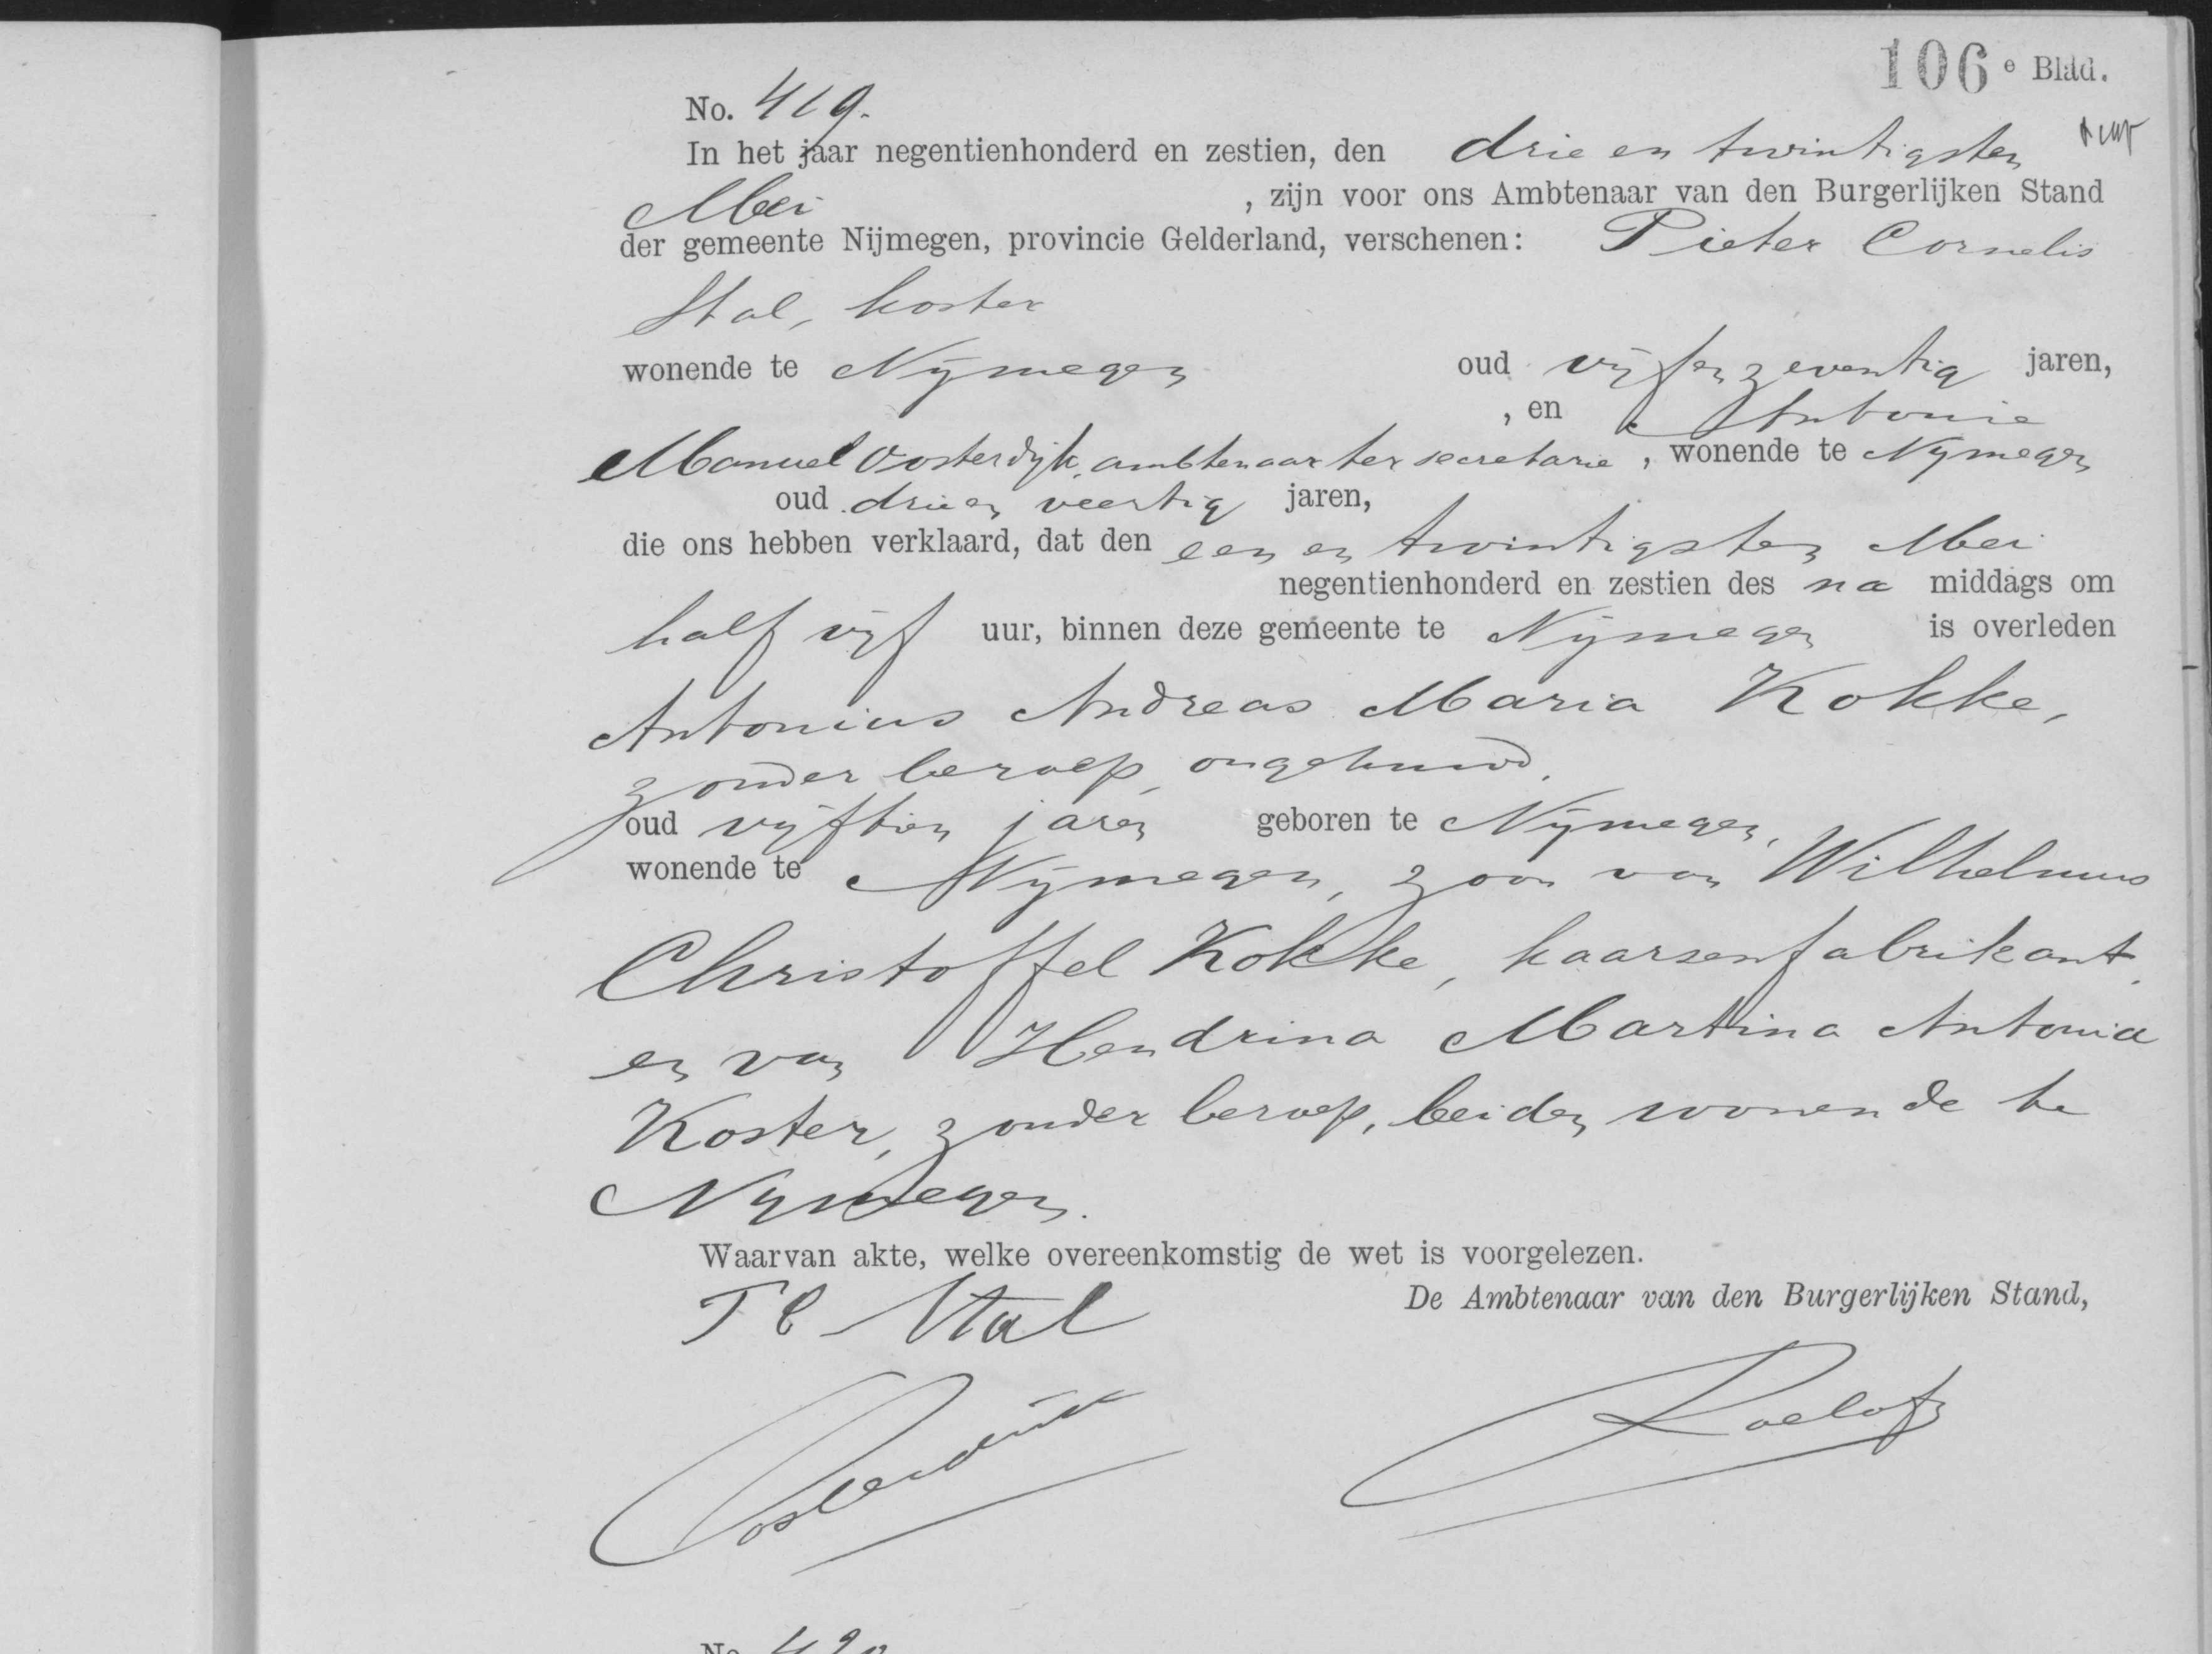 106 e Blad.
No. 419.
In het jaar negentienhonderd en zestien, den drie en twintigsten
Mei , zijn voor ons Ambtenaar van den Burgerlijken Stand
der gemeente Nijmegen, provincie Gelderland, verschenen: Pieter Cornelis
Stal, koster
wonende te Nijmegen oud vijfenzeventig jaren,
, en Antonie
Manuel Oosterdijk, ambtenaar ter secretarie, wonende te Nijmegen
oud drieen veertig jaren,
die ons hebben verklaard, dat den een en twintigsten Mei
negentienhonderd en zestien des na middags om
half vijf uur, binnen deze gemeente te Nijmegen is overleden
Antonius Andreas Maria Kokke,
zonder beroep, ongehuwd,
oud vijftien jaren geboren te Nijmegen,
wonende te Nijmegen, zoon van Wilhelmus
Christoffel Kokke, kaarsenfabrikant,
en van Hendrina Martina Antonia
Koster, zonder beroep, beiden wonende te
Nijmegen.
Waarvan akte, welke overeenkomstig de wet is voorgelezen.
De Ambtenaar van den Burgerlijken Stand,
P C Stal
Oosterdijk
Roelofs
No. 420